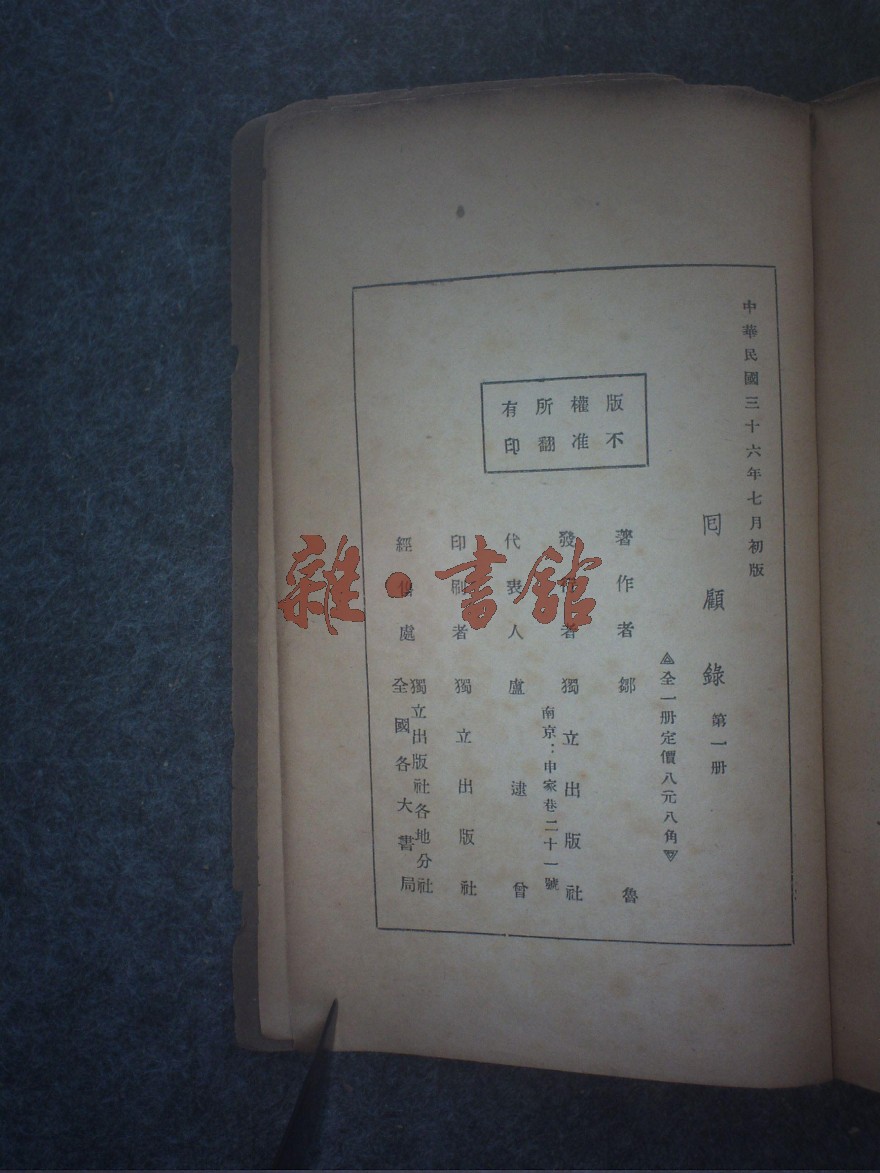 中華民國三十六年七月初版
囘顧錄 第一册
全一册定價八元八角
版權所有
不准翻印
著作者 鄒魯
發行者 獨立出版社
南京：申家巷二十一號
代表人 盧逮曾
印刷者 獨立出版社
經售處 獨立出版社各地分社
全國各大書局
雜·書館